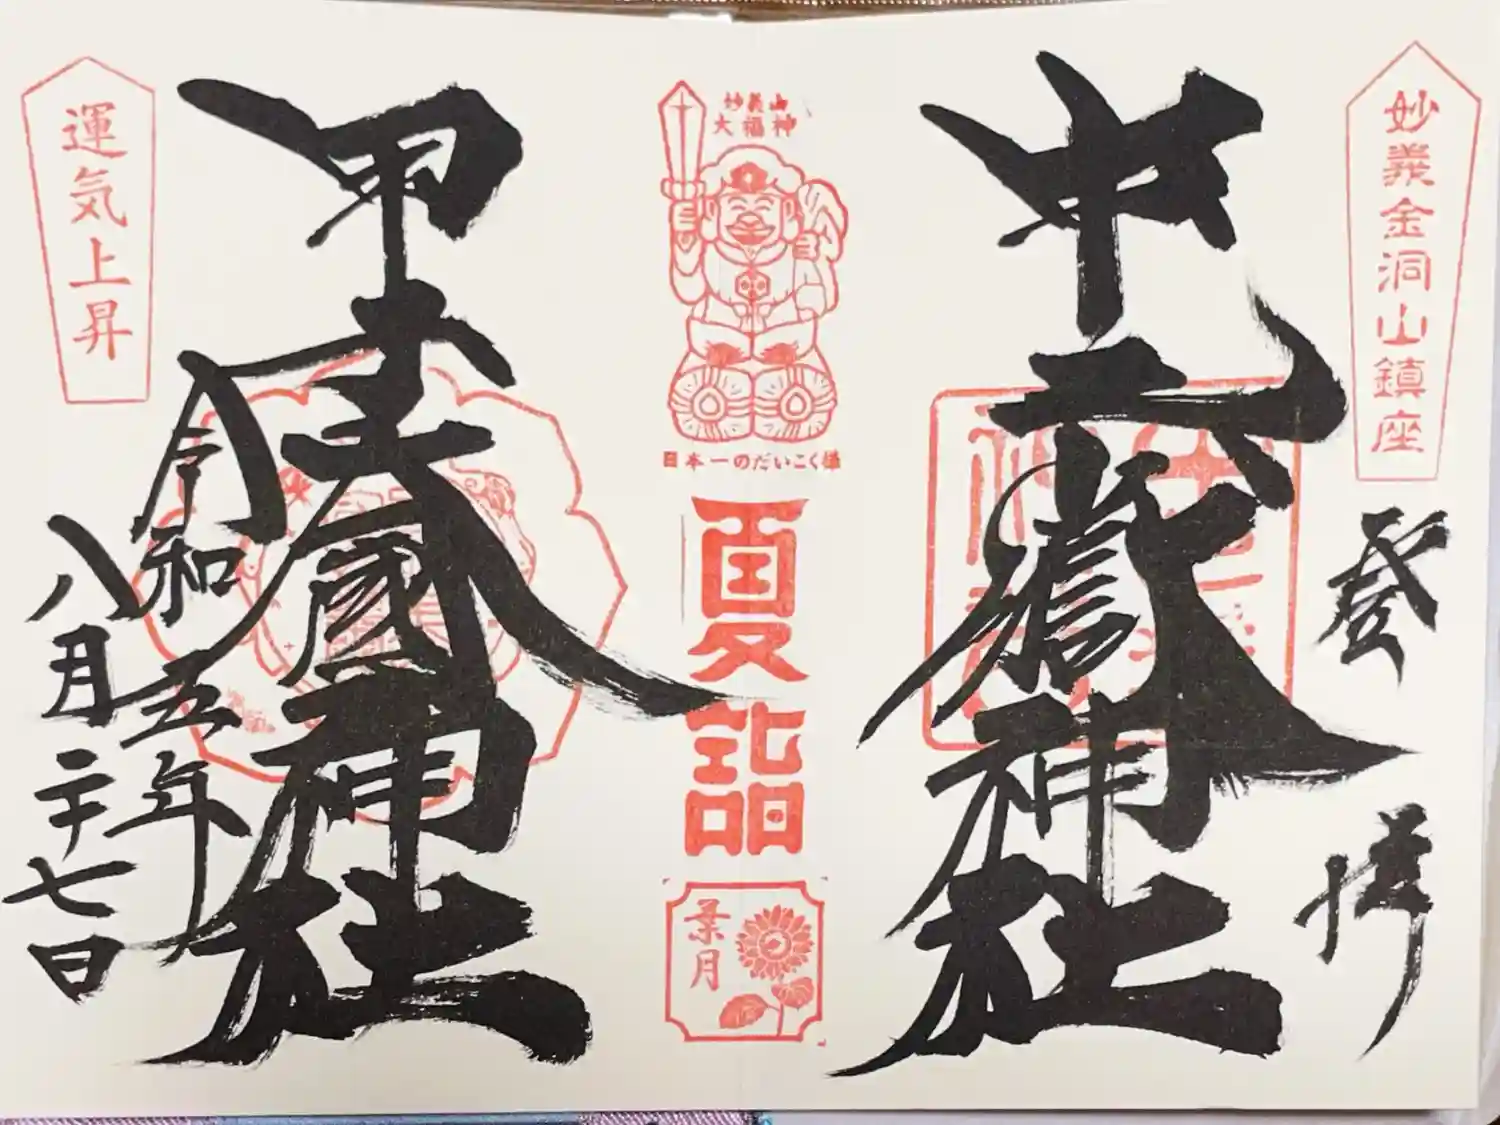 妙義金洞山鎮座
登拝
中之嶽神社
妙義山
大福神
日本一のだいこく様
夏詣
葉月
甲子大國神社
令和五年
八月二十七日
運気上昇